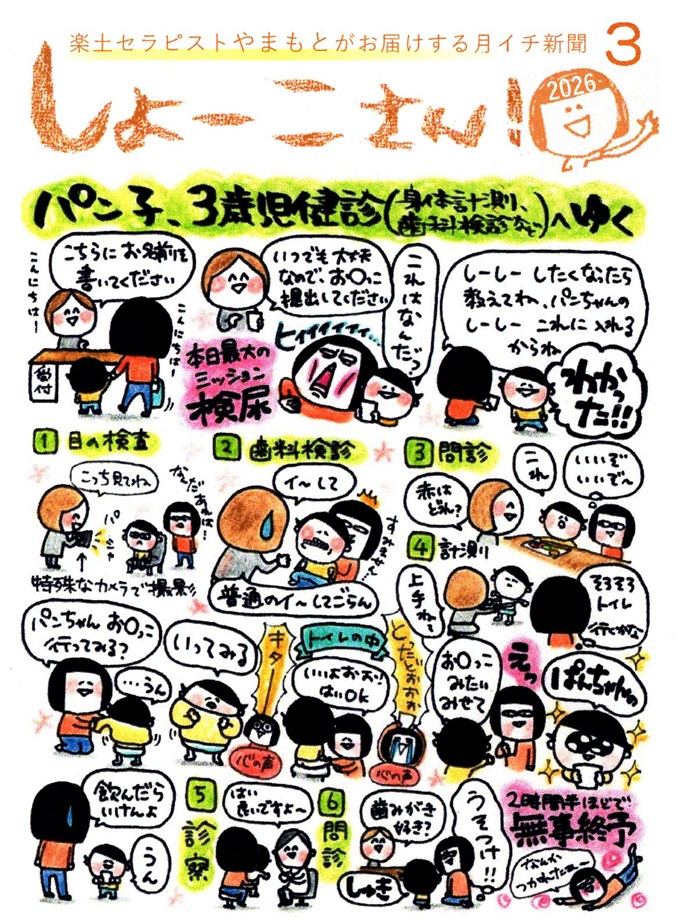 楽土セラピストやまもとがお届けする月イチ新聞
3
しょーこさん!
2026
パン子、3歳児健診(身体計測、
歯科検診など)へゆく
こんにちは…
こちらにお名前を
書いてください
こんにちは…
受付
いつでも大丈夫
なので、お〇っこ
提出してください
本日最大の
ミッション
検尿
ヒィィィィィィ…
これはなんだっ
しーしー したくなったら
教えてね、パンちゃんの
しーしー これに 入れる
からね
わかっ
た!!
1 目の検査
こっち見てね
パシャ
なんだあれは…
特殊なカメラで撮影
2 歯科検診
イ〜して
すみません…
普通のイ〜してごらん
3 問診
赤は
どれ?
これ
いいぞ
いいぞ〜
4 計測
上手ね!
そろそろ
トイレ
行くかな
パンちゃん お〇っこ
行ってみる?
…うん
いってみる
キター
心の声
トイレの中
いいよおおおっ
はいOK
とったどおおお
心の声
お〇っこ
みたい
みせて
えっ
ぱんちゃんの
飲んだら
いけんよ
うん
5 診察
はい
良いですよ〜
6 問診
歯みがき
好き?
しゅき
うそつけ!!
2時間半ほどで
無事終了
なんか
つかれたね〜